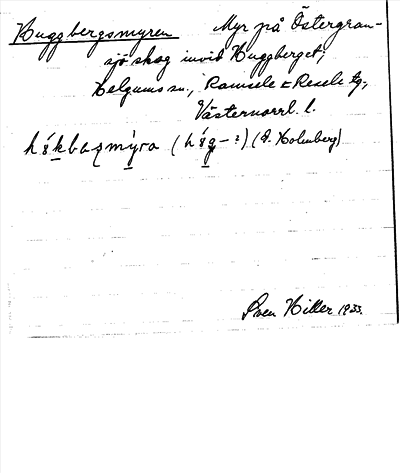 Huggbergsmyren Myr på Östergran-
sjö skog invid Huggberget;
Helgums sn., Ramsele o Resele tg.,
Västernorrl. l.
(O. Holmberg)
Sven Hiller 1933.